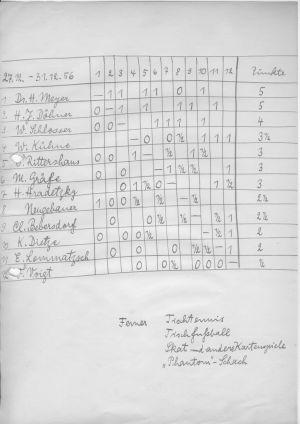 27.12. - 31.12.56 1 2 3 4 5 6 7 8 9 10 11 12 Punkte
1 Dr. H. Meyer – 1 1 1 1 0 1 5
2 H. J. Döhner 0 – 1 1 1 1 1 5
3 W. Schlosser 0 0 – 1 1 1 1 4
4 W. Kühne – 0 0 ½ 1 1 1 3½
5 Rittershaus 0 0 1 – ½ 1 ½ 3
6 M. Gräfe 0 0 – 1 ½ ½ 1 3
7 H. Hradetzky 0 1 ½ 0 – 1 ½ 3
8 Neugebauer 1 0 0 ½ ½ – ½ 2½
9 Cl. Bebersdorf 0 0 ½ ½ – ½ 1 2½
10 K. Dietze 0 0 0 ½ – ½ 1 2
11 E. Lommatzsch 0 0 0 ½ ½ – 1 2
12 Voigt 0 0 ½ 0 0 0 – ½
Ferner Tischtennis
Tischfußball
Skat – und andere Kartenspiele
„Phantom“-Schach